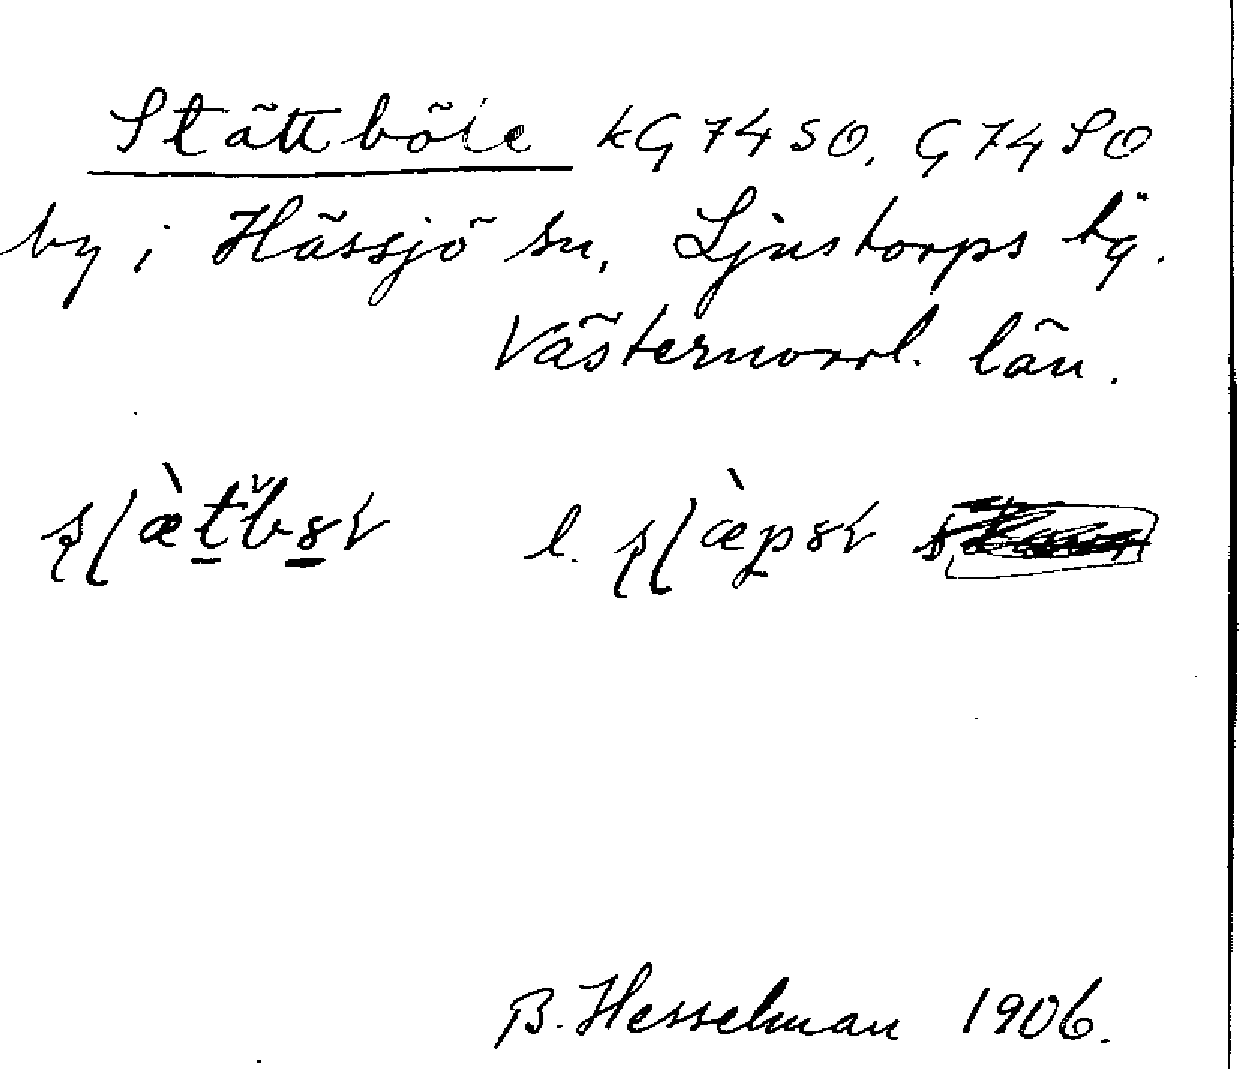 Stättböle kG 74 SO, G 74 SO
by i Hässjö sn, Ljustorps tg.
Västernorrl. län.
l.
B. Hesselman 1906.